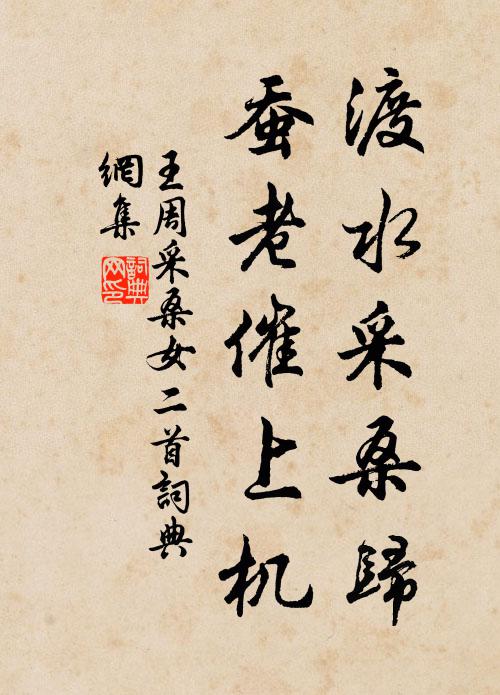 渡水采桑歸
蚕老催上机
王周采桑女二首詞典
網集
詞典網印